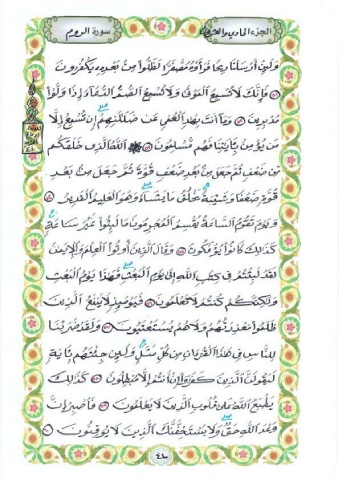 الجزء الحادي والعشرون
سورة الروم
ولئن أرسلنا ريحا فرأوه مصفرا لظلوا من بعده يكفرون
٥١ فإنك لا تسمع الموتى ولا تسمع الصم الدعاء إذا ولوا
مدبرين ٥٢ وما أنت بهاد العمي عن ضلالتهم إن تسمع إلا
من يؤمن بآياتنا فهم مسلمون ٥٣ الله الذي خلقكم
من ضعف ثم جعل من بعد ضعف قوة ثم جعل من بعد
قوة ضعفا وشيبة يخلق ما يشاء وهو العليم القدير ٥٤
ويوم تقوم الساعة يقسم المجرمون ما لبثوا غير ساعة
كذلك كانوا يؤفكون ٥٥ وقال الذين أوتوا العلم والإيمان
لقد لبثتم في كتاب الله إلى يوم البعث فهذا يوم البعث
ولكنكم كنتم لا تعلمون ٥٦ فيومئذ لا ينفع الذين
ظلموا معذرتهم ولا هم يستعتبون ٥٧ ولقد ضربنا
للناس في هذا القرءان من كل مثل ولئن جئتهم بآية
ليقولن الذين كفروا إن أنتم إلا مبطلون ٥٨ كذلك
يطبع الله على قلوب الذين لا يعلمون ٥٩ فاصبر إن
وعد الله حق ولا يستخفنك الذين لا يوقنون ٦٠
٤١٠